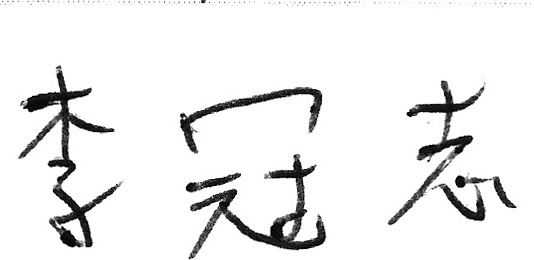 李冠志